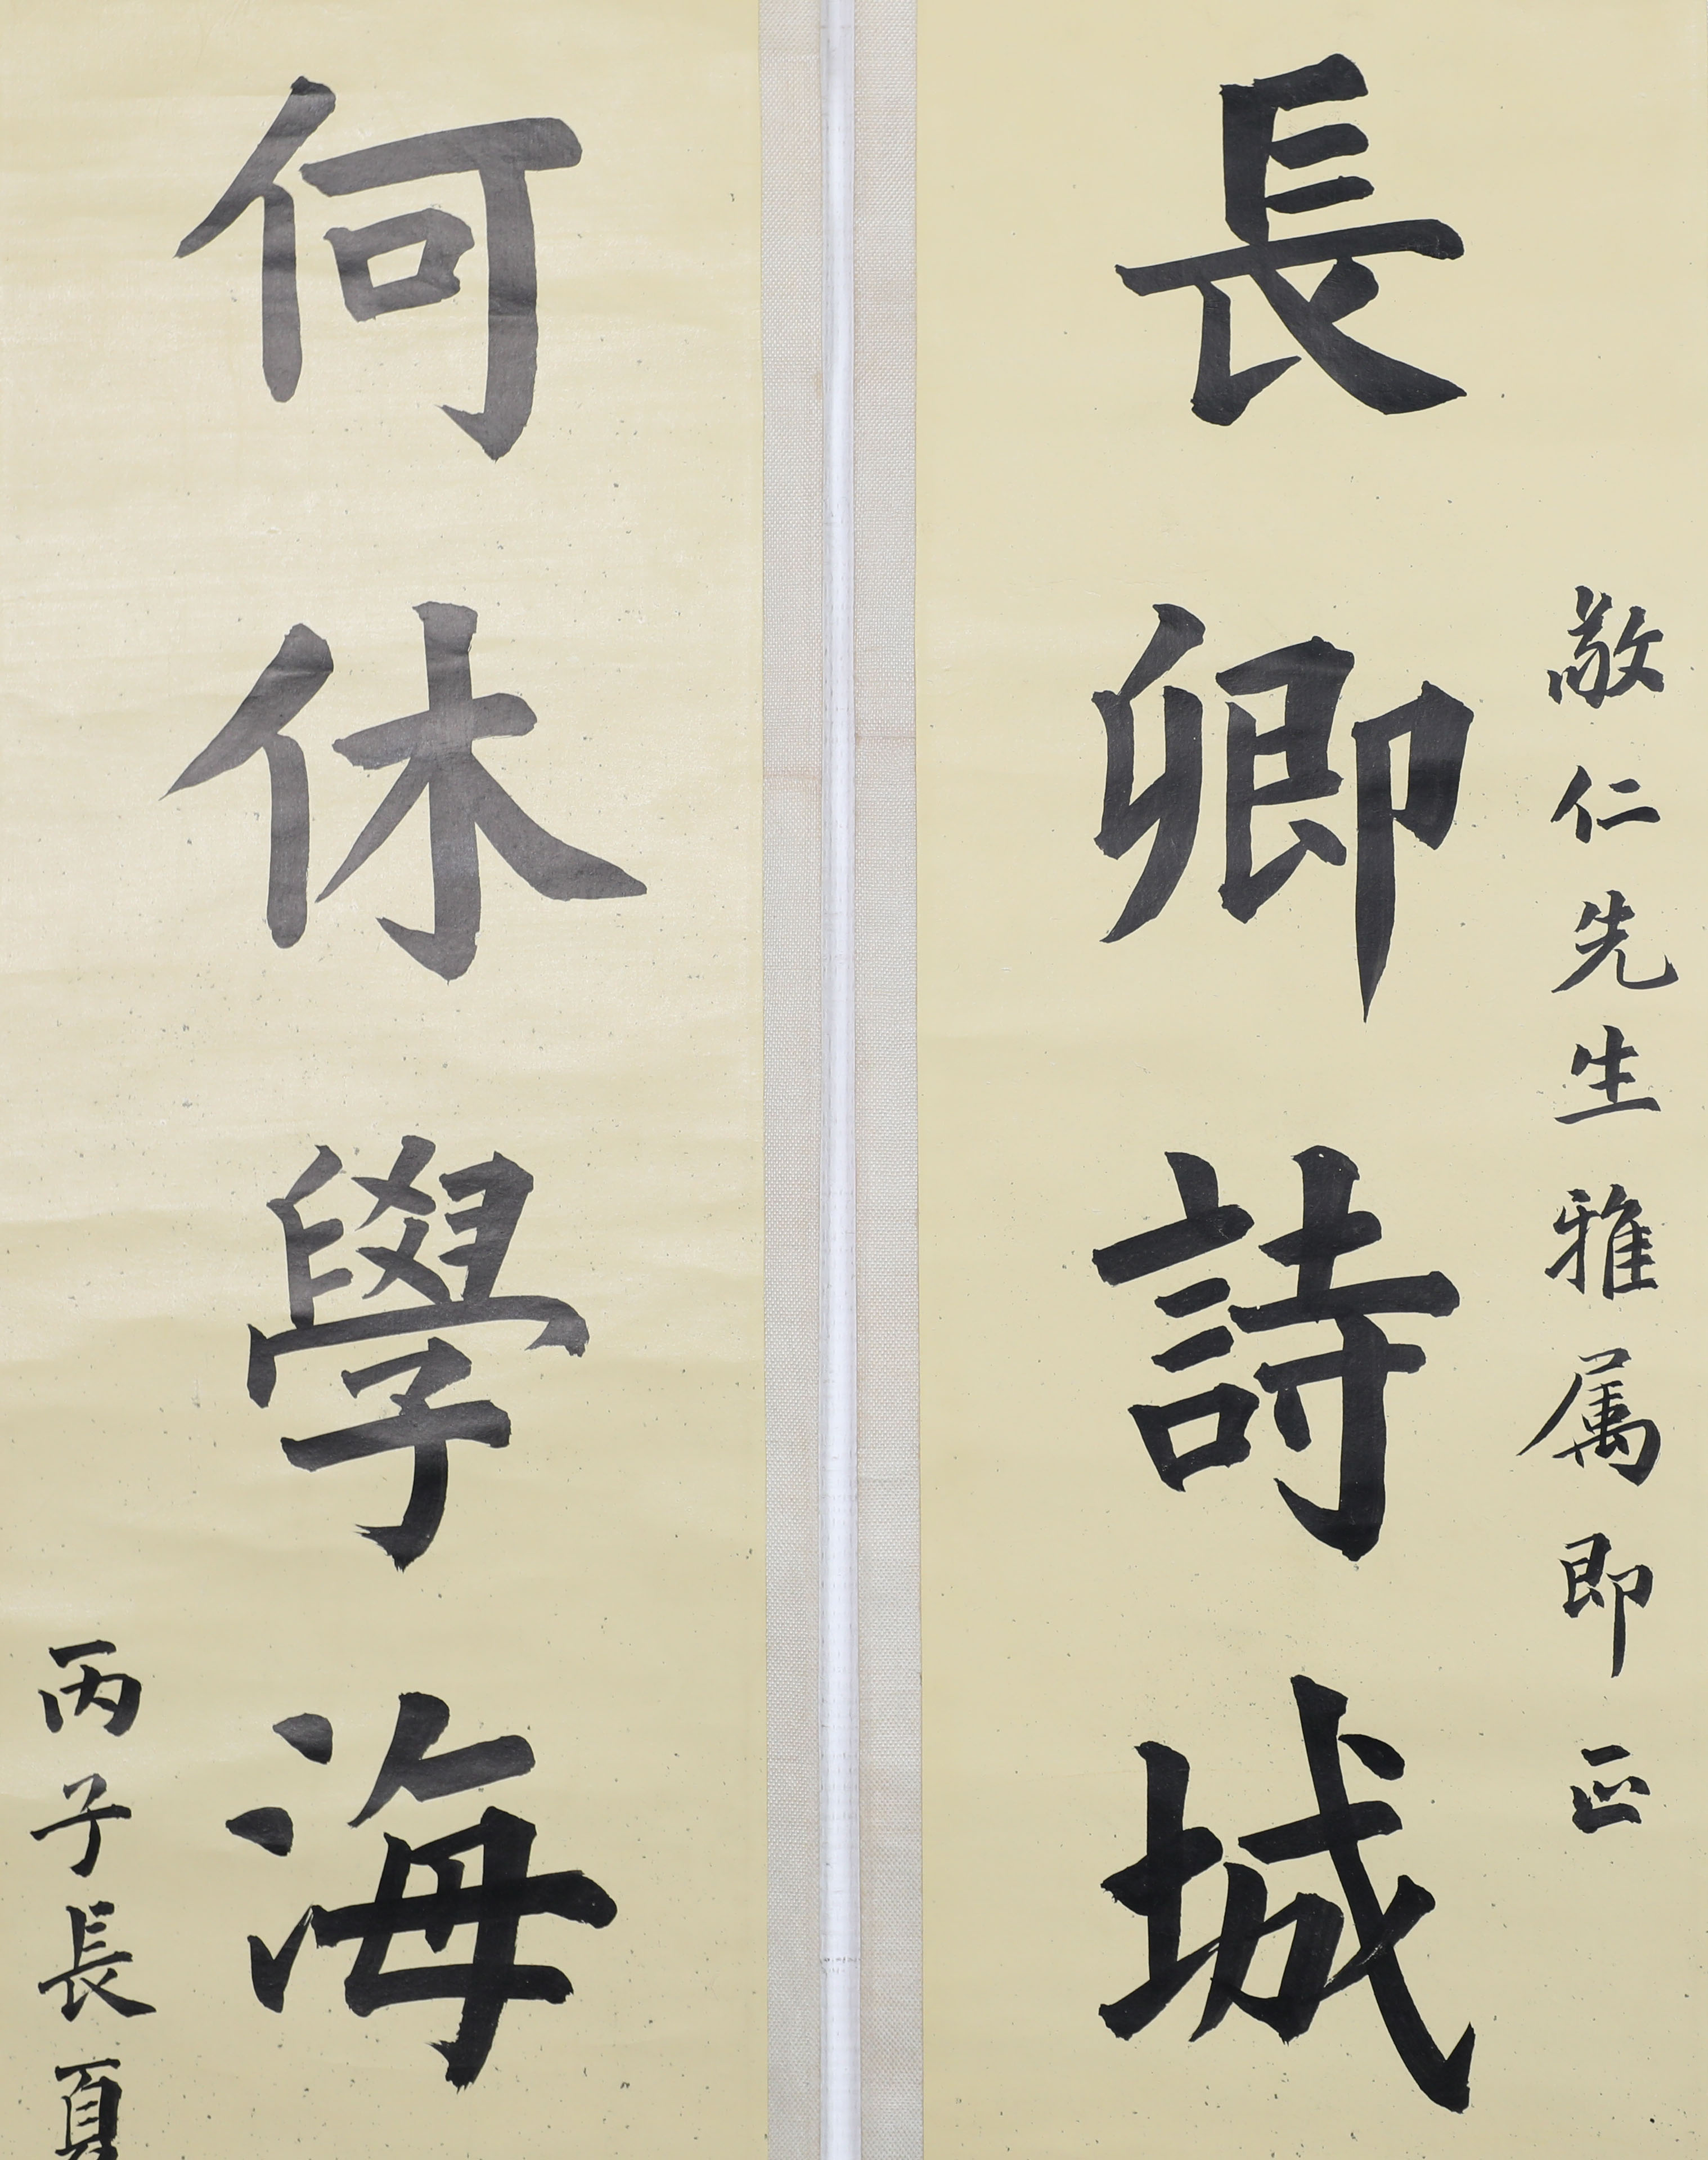 敬仁先生雅属即正
長卿詩城
何休學海
丙子長夏